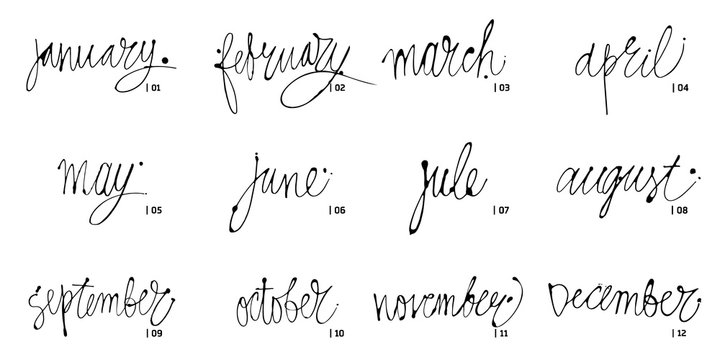 january
| 01
february
| 02
march
| 03
april
| 04
may
| 05
june
| 06
jule
| 07
august
| 08
september
| 09
october
| 10
november
| 11
December
| 12